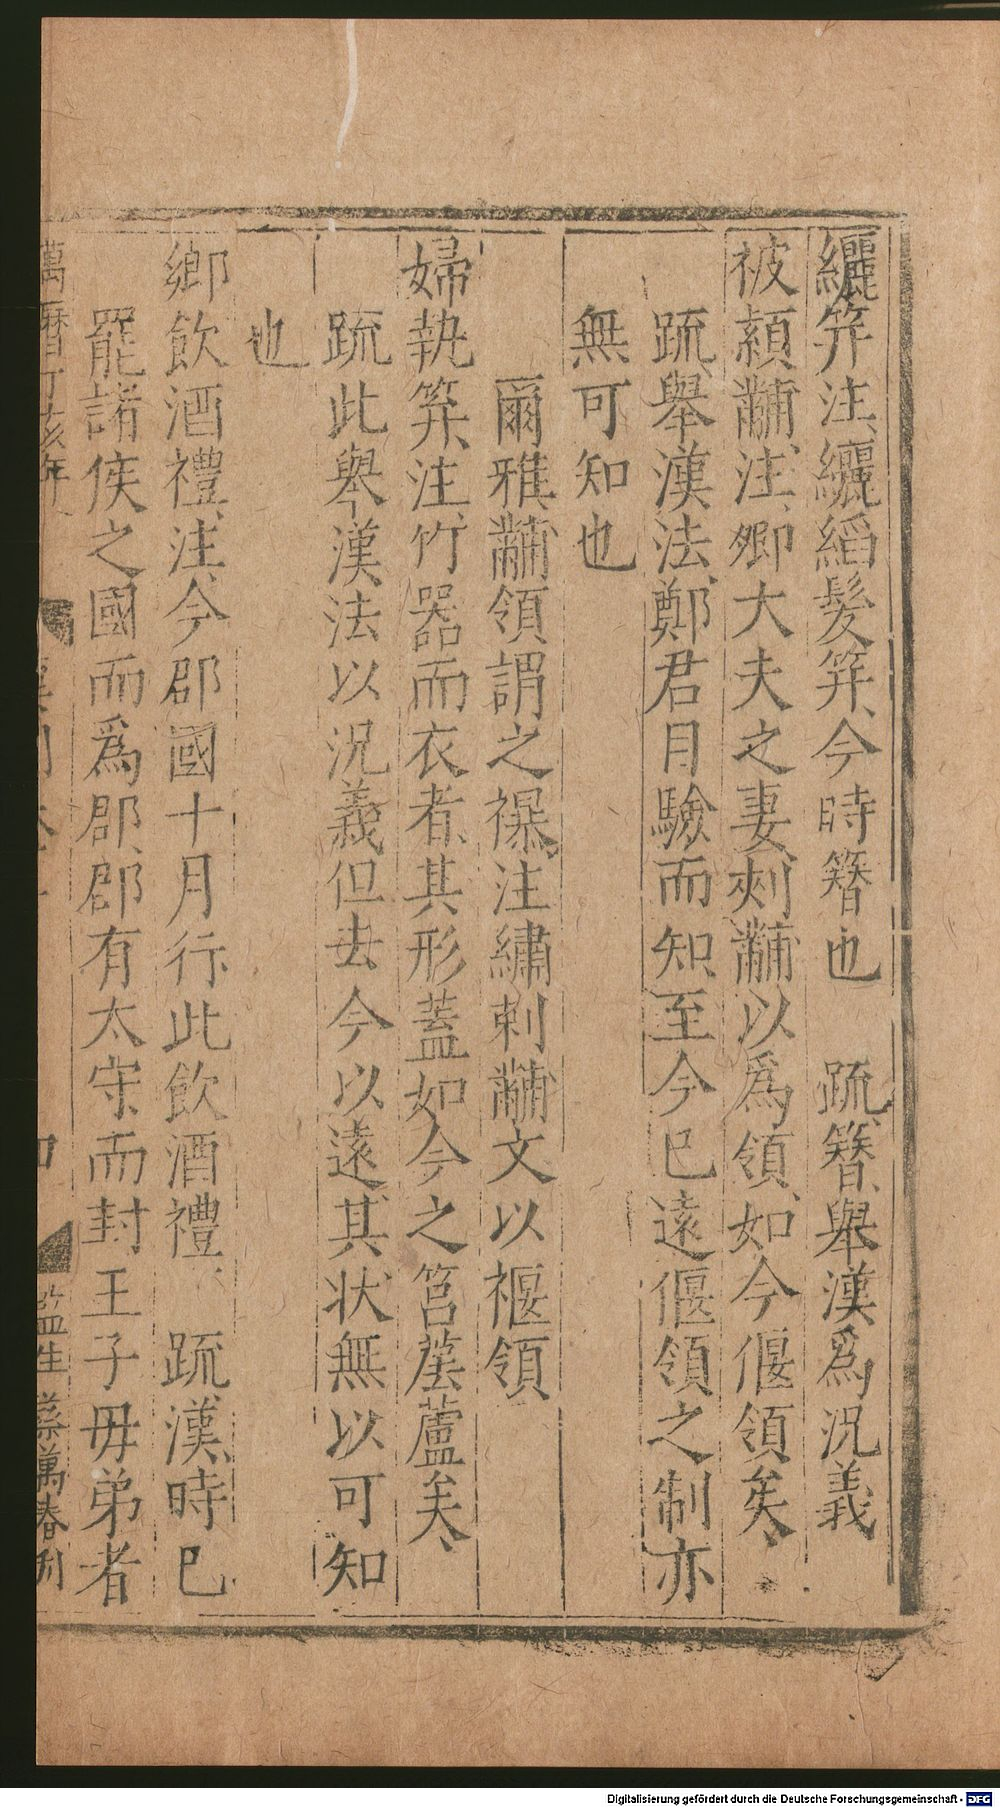 纚笄注、纚縚髮笄、今時簪也　疏、簪、舉漢爲況義
被熲黼、注、卿大夫之妻、刺黼以爲領、如今偃領矣、
疏、舉漢法、鄭君目驗而知、至今已遠偃領之制亦
無可知也
爾雅黼領謂之襮、注繡刺黼文以褗領
婦執笲、注、竹器而衣者、其形蓋如今之筥䈰蘆矣、
疏此舉漢法以況義但去今以遠、其状無以可知
也
鄉飲酒禮、注、今郡國十月行此飲酒禮　疏漢時已
罷諸侯之國而爲郡、郡有太守、而封王子母弟者
萬曆丁亥年
監生蔡萬春刊
Digitalisierung gefördert durch die Deutsche Forschungsgemeinschaft - DFG